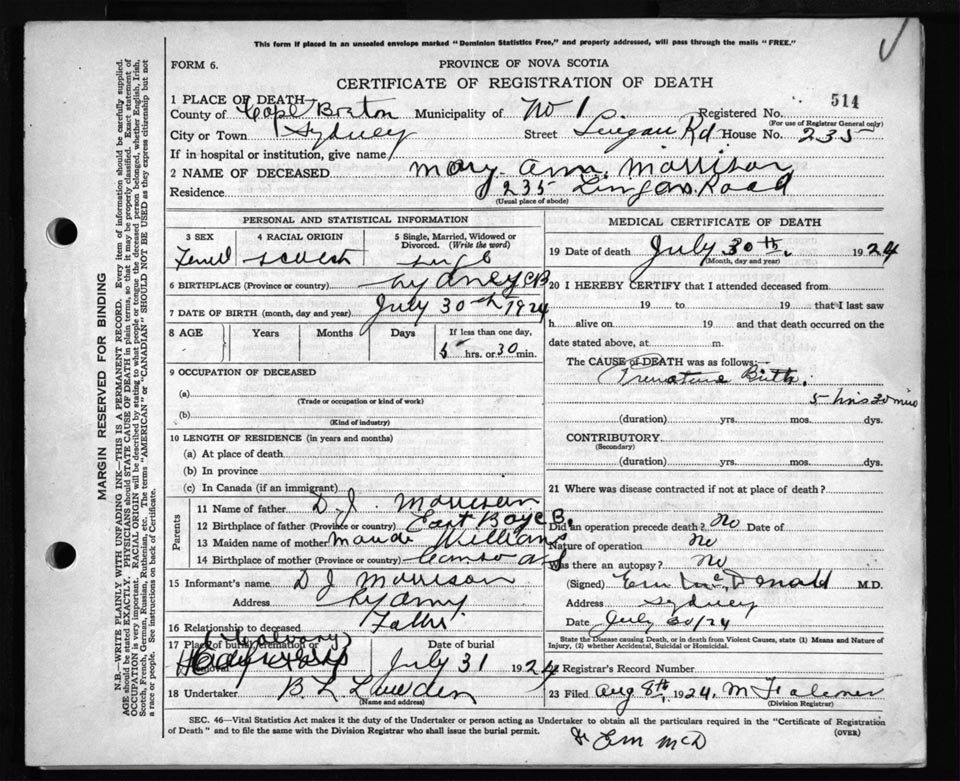 This form if placed in an unsealed envelope marked "Dominion Statistics Free," and properly addressed, will pass through the mails "FREE."
FORM 6.
PROVINCE OF NOVA SCOTIA
CERTIFICATE OF REGISTRATION OF DEATH
514
1 PLACE OF DEATH
County of Cape Breton Municipality of No 1 Registered No.
(For use of Registrar General only)
City or Town Sydney Street Lingan Rd House No. 235
If in hospital or institution, give name
2 NAME OF DECEASED Mary Ann Morrison
Residence 235 Lingan Road
(Usual place of abode)
PERSONAL AND STATISTICAL INFORMATION
3 SEX 4 RACIAL ORIGIN 5 Single, Married, Widowed or Divorced. (Write the word)
Scotch
6 BIRTHPLACE (Province or country) Sydney CB
7 DATE OF BIRTH (month, day and year) July 30th 1924
8 AGE Years Months Days If less than one day,
5 hrs. or 30 min.
9 OCCUPATION OF DECEASED
(a)
(Trade or occupation or kind of work)
(b)
(Kind of industry)
10 LENGTH OF RESIDENCE (in years and months)
(a) At place of death
(b) In province
(c) In Canada (if an immigrant)
Parents
11 Name of father D. J. Morrison
12 Birthplace of father (Province or country) East Bay C.B.
13 Maiden name of mother Maude Williams
14 Birthplace of mother (Province or country)
15 Informant's name D J Morrison
Address Sydney
16 Relationship to deceased Father
17 Place of burial, cremation or Date of burial
(Calvary)
July 31 1924
18 Undertaker B L
(Name and address)
MEDICAL CERTIFICATE OF DEATH
19 Date of death July 30th, 1924
(Month, day and year)
20 I HEREBY CERTIFY that I attended deceased from
19 to 19 that I last saw
h alive on 19 and that death occurred on the
date stated above, at m.
The CAUSE OF DEATH was as follows:
Premature Birth.
5 hrs 30 mins
(duration) yrs. mos. dys.
CONTRIBUTORY
(Secondary)
(duration) yrs. mos. dys.
21 Where was disease contracted if not at place of death?
Did an operation precede death? No Date of
Nature of operation No
Was there an autopsy? No
(Signed) McDonald M.D.
Address Sydney
Date July 30/24
State the Disease causing Death, or in death from Violent Causes, state (1) Means and Nature of Injury, (2) whether Accidental, Suicidal or Homicidal.
22 Registrar's Record Number
23 Filed Aug 8th, 1924. M Falconer
(Division Registrar)
SEC. 46—Vital Statistics Act makes it the duty of the Undertaker or person acting as Undertaker to obtain all the particulars required in the "Certificate of Registration
of Death" and to file the same with the Division Registrar who shall issue the burial permit.
(OVER)
MARGIN RESERVED FOR BINDING
N.B.—WRITE PLAINLY WITH UNFADING INK—THIS IS A PERMANENT RECORD. Every item of information should be carefully supplied.
AGE should be stated EXACTLY. PHYSICIANS should STATE CAUSE OF DEATH in plain terms, so that it may be properly classified. Exact statement of
OCCUPATION is very important. RACIAL ORIGIN will be described by stating to what people or tongue the deceased person belonged, whether English, Irish,
Scotch, French, German, Russian, Ruthenian, etc. The terms "AMERICAN" or "CANADIAN" SHOULD NOT BE USED as they express citizenship but not
a race or people. See instructions on back of Certificate.